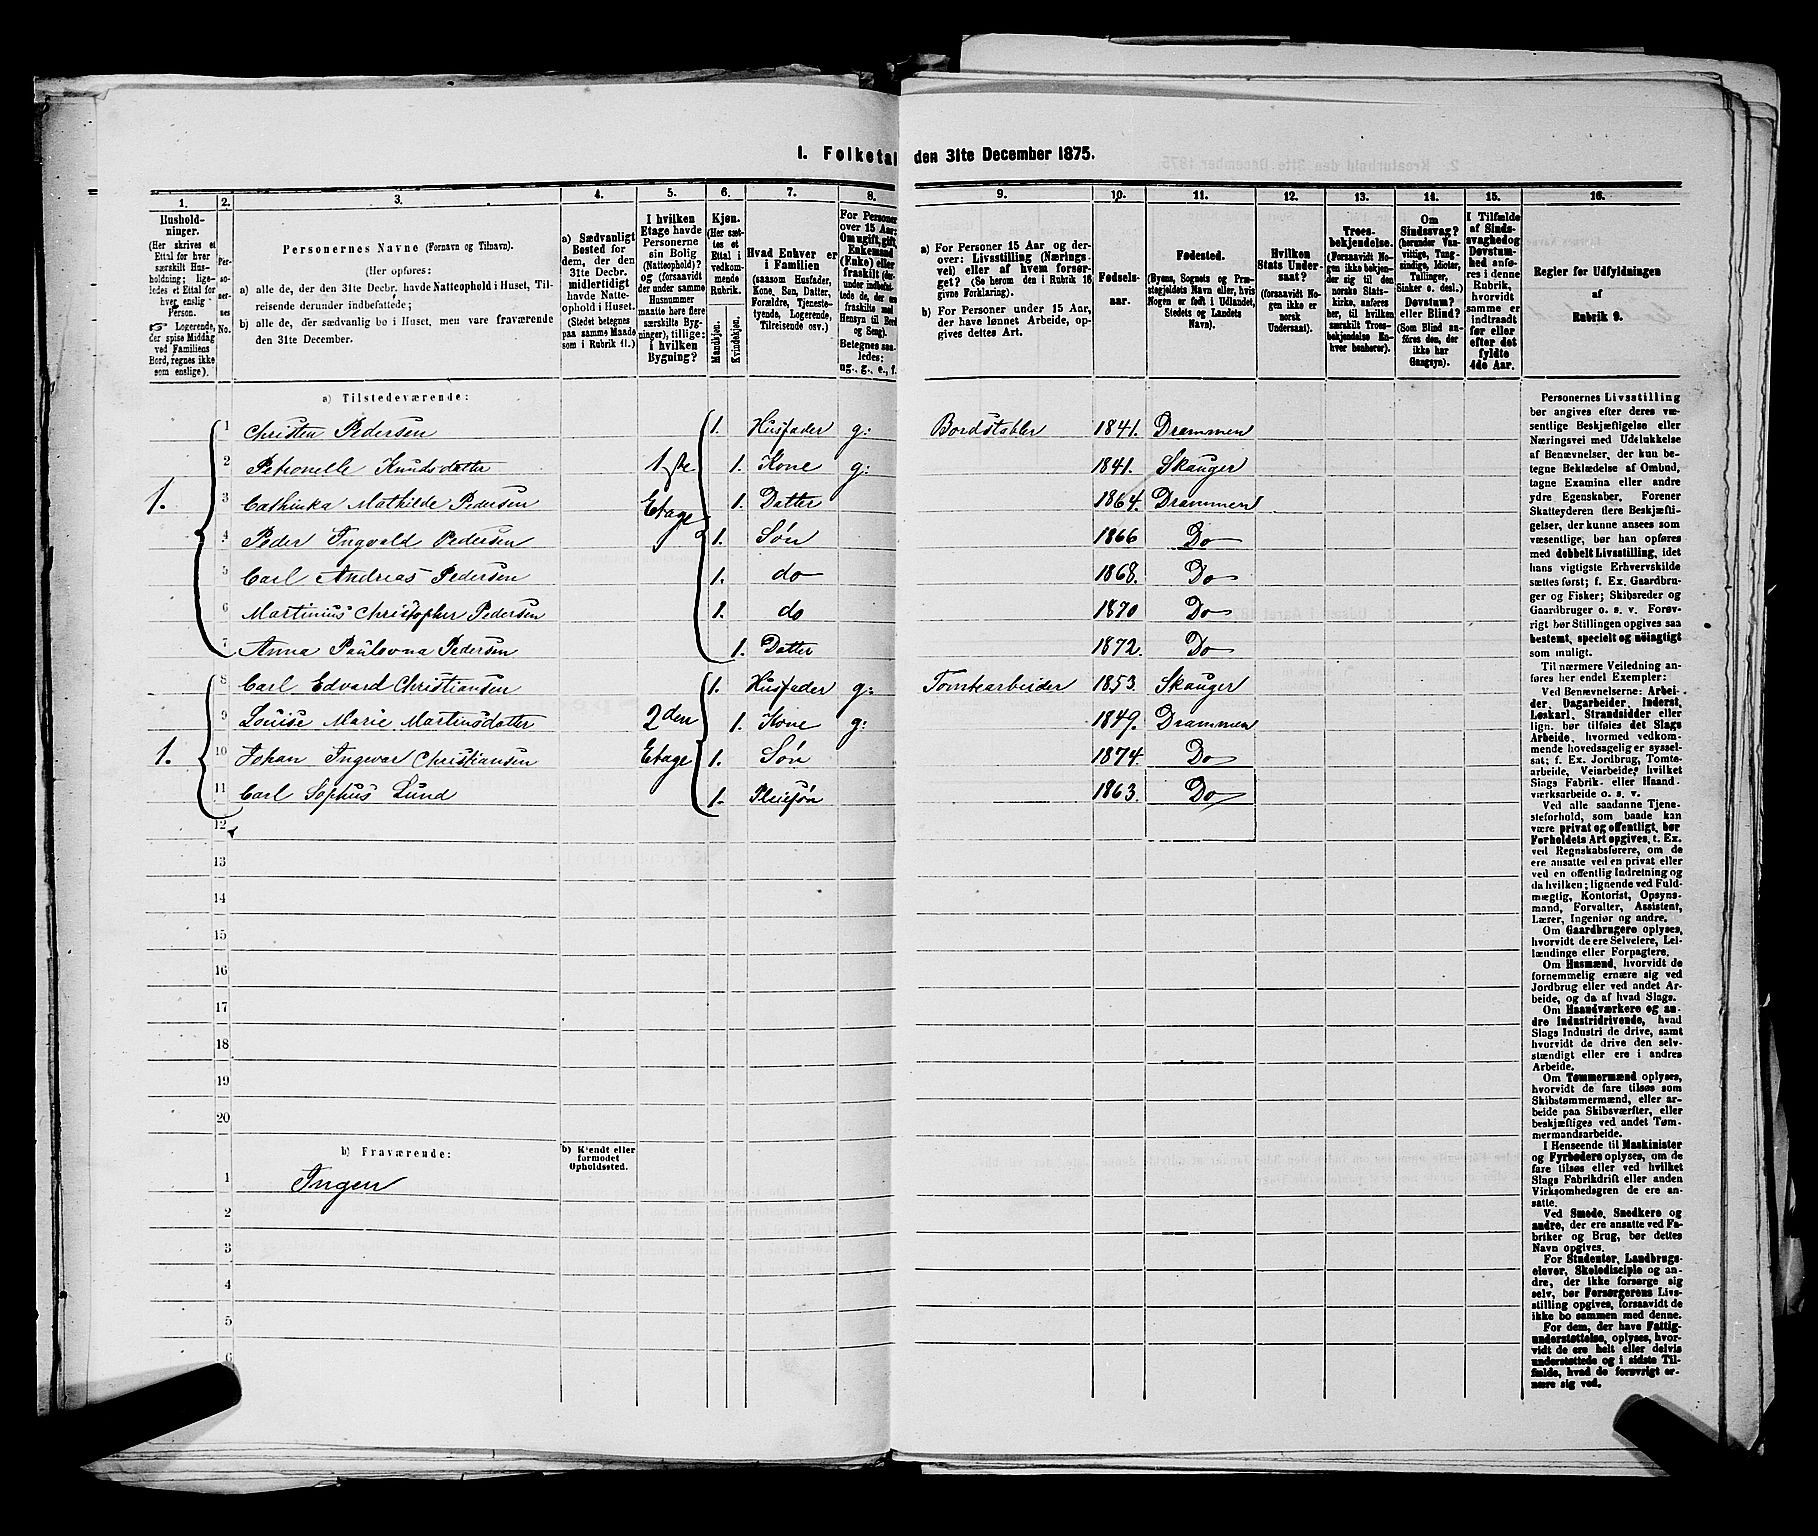 I. Folketal den 31te December 1875.
1. 2. 3. 4. 5. 6. 7. 8. 9. 10. 11. 12. 13. 14. 15. 16.
Husholdninger. (Her skrives et Ettal for hver særskilt Husholdning; ligeledes et Ettal for hver enslig Person. ☞ Logerende, der spise Middag ved Familiens Bord, regnes ikke som enslige).
Personernes No.
Personernes Navne (Fornavn og Tilnavn).
(Her opføres:
a) alle de, der den 31te Decbr. havde Natteophold i Huset, Tilreisende derunder indbefattede;
b) alle de, der sædvanlig bo i Huset, men vare fraværende den 31te December.
a) Sædvanligt Bosted for dem, der den 31te Decbr. midlertidigt havde Natteophold i Huset. (Stedet betegnes paa samme Maade som i Rubrik 11.)
I hvilken Etage havde Personerne sin Bolig (Natteophold)? og (forsaavidt der under samme Husnummer maatte høre flere særskilte Bygninger), tillige: i hvilken Bygning?
Kjøn. (Her sættes et Ettal i vedkommende Rubrik. Mandkjøn. Kvindekjøn.
Hvad Enhver er i Familien (saasom Husfader, Kone, Søn, Datter, Forældre, Tjenestetyende, Logerende, Tilreisende osv.)
For Personer over 15 Aar: Om ugift, gift, Enkemand (Enke) eller fraskilt (derunder indbefattede de, der ere fraskilte med Hensyn til Bord og Seng). Betegnes saaledes: ug., g., e., f.
a) For Personer 15 Aar og derover: Livsstilling (Næringsvei) eller af hvem forsørget? (Se herom den i Rubrik 16 givne Forklaring).
b) For Personer under 15 Aar, der have lønnet Arbeide, opgives dettes Art.
Fødselsaar.
Fødested. (Byens, Sognets og Præstegjeldets Navn eller, hvis Nogen er født i Udlandet, Stedets og Landets Navn).
Hvilken Stats Undersaat? (forsaavidt Nogen ikke er norsk Undersaat).
Troesbekjendelse. (Forsaavidt Nogen ikke bekjender sig til den norske Statskirke, anføres her, til hvilken særskilt Troesbekjendelse Enhver henhører).
Om Sindssvag? (herunder Vanvittige, Tungsindige, Idioter, Tullinger, Sinker o. desl.). Døvstum? eller Blind? (Som Blind anføres den, der ikke har Gangsyn).
I Tilfælde af Sindssvaghed og Døvstumhed anføres i denne Rubrik, hvorvidt samme er indtraadt før eller efter det fyldte 4de Aar.
Regler for Udfyldningen af Rubrik 9.
a) Tilstedeværende:
1 Christen Pedersen 1. Husfader g: Bordstabler 1841. Drammen
2 Petronelle Knudsdatter 1ste 1. Kone g: 1841. Skauger
1. 3 Cathinka Mathilde Pedersen Etage 1. Datter 1864. Drammen
4 Peder Ingvald Pedersen 1. Søn 1866 Do
5 Carl Andreas Pedersen 1. do 1868. Do
6 Martinius Christopher Pedersen 1. do 1870 Do
7 Anna Paulovna Pedersen 1. Datter 1872. Do
8 Carl Edvard Christiansen 1. Husfader g: Tomtearbeider 1853. Skauger
9 Louise Marie Martinsdatter 2den 1. Kone g: 1849. Drammen
1. 10 Johan Ingevar Christiansen Etage 1. Søn 1874. Do
11 Carl Sophus Lund 1. Pleiesøn 1863. Do
12
13
14
15
16
17
18
19
20
b) Fraværende: b) Kjendt eller formodet Opholdssted.
1 Ingen
2
3
4
5
6
Personernes Livsstilling
bør angives efter deres væ-
sentlige Beskjæftigelse eller
Næringsvei med Udelukkelse
af Benævnelser, der kun be-
tegne Beklædelse af Ombud,
tagne Examina eller andre
ydre Egenskaber. Forener
Skatteyderen flere Beskjæfti-
gelser, der kunne ansees som
væsentlige, bør han opføres
med dobbelt Livsstilling, idet
hans vigtigste Erhvervskilde
sættes først; f. Ex. Gaardbru-
ger og Fisker; Skibsreder og
Gaardbruger o. s. v. Forøv-
rigt bør Stillingen opgives saa
bestemt, specielt og nöiagtigt
som muligt.
Til nærmere Veiledning an-
føres her endel Exempler:
Ved Benævnelserne: Arbei-
der, Dagarbeider, Inderst,
Løskarl, Strandsidder eller
lign. bør tilføies det Slags
Arbeide, hvormed vedkom-
mende hovedsagelig er syssel-
sat; f. Ex. Jordbrug, Tomte-
arbeide, Veiarbeide, hvilket
Slags Fabrik- eller Haand-
værksarbeide o. s. v.
Ved alle saadanne Tjene-
steforhold, som baade kan
være privat og offentligt, bør
Forholdets Art opgives, t. Ex.
ved Regnskabsførere, om de
ere ansatte ved en privat eller
ved en offentlig Indretning og
da hvilken; lignende ved Fuld-
mægtig, Kontorist, Opsyns-
mand, Forvalter, Assistent,
Lærer, Ingeniør og andre.
Om Gaardbrugere oplyses,
hvorvidt de ere Selveiere, Lei-
lændinge eller Forpagtere.
Om Husmænd, hvorvidt de
fornemmelig ernære sig ved
Jordbrug eller ved andet Ar-
beide, og da af hvad Slags.
Om Haandværkere og an-
dre Industridrivende, hvad
Slags Industri de drive, samt
hvorvidt de drive den selv-
stændigt eller ere i andres
Arbeide.
Om Tømmermænd oplyses,
hvorvidt de fare tilsøs som
Skibstømmermænd, eller ar-
beide paa Skibsværfter, eller
beskjæftiges ved andet Tøm-
mermandsarbeide.
I Henseende til Maskinister
og Fyrbødere oplyses, om de
fare tilsøs eller ved hvilket
Slags Fabrikdrift eller anden
Virksomhedsgren de ere an-
satte.
Ved Smede, Snedkere og
andre, der ere ansatte ved Fa-
briker og Brug, bør dettes
Navn opgives.
For Studenter, Landbrugs-
elever, Skoledisciple og an-
dre, der ikke forsørge sig
selv, bør Forsørgerens Livs-
stilling opgives, forsaavidt de
ikke bo sammen med denne.
For dem, der have Fattig-
understøttelse, oplyses, hvor-
vidt de ere helt eller delvis
understøttede og i sidste Til-
fælde, hvad de forøvrigt er-
nære sig ved.